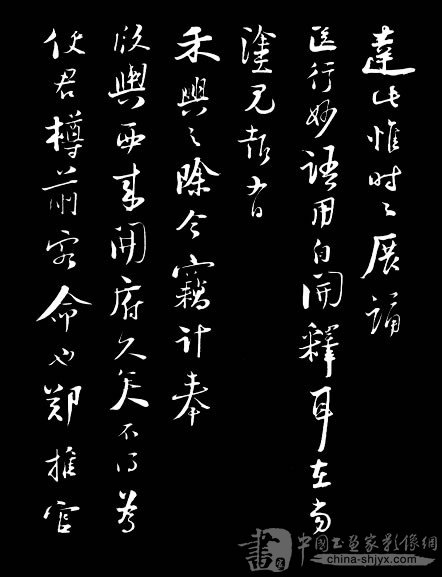 達此惟時々展誦
臨行妙語用自開釋耳在當
塗見報有
禾興之除今竊計奉
版輿西來開府久矣不得為
使君樽前客命也鄭推官
書
中國書畫家影像網
china-shjyx.com